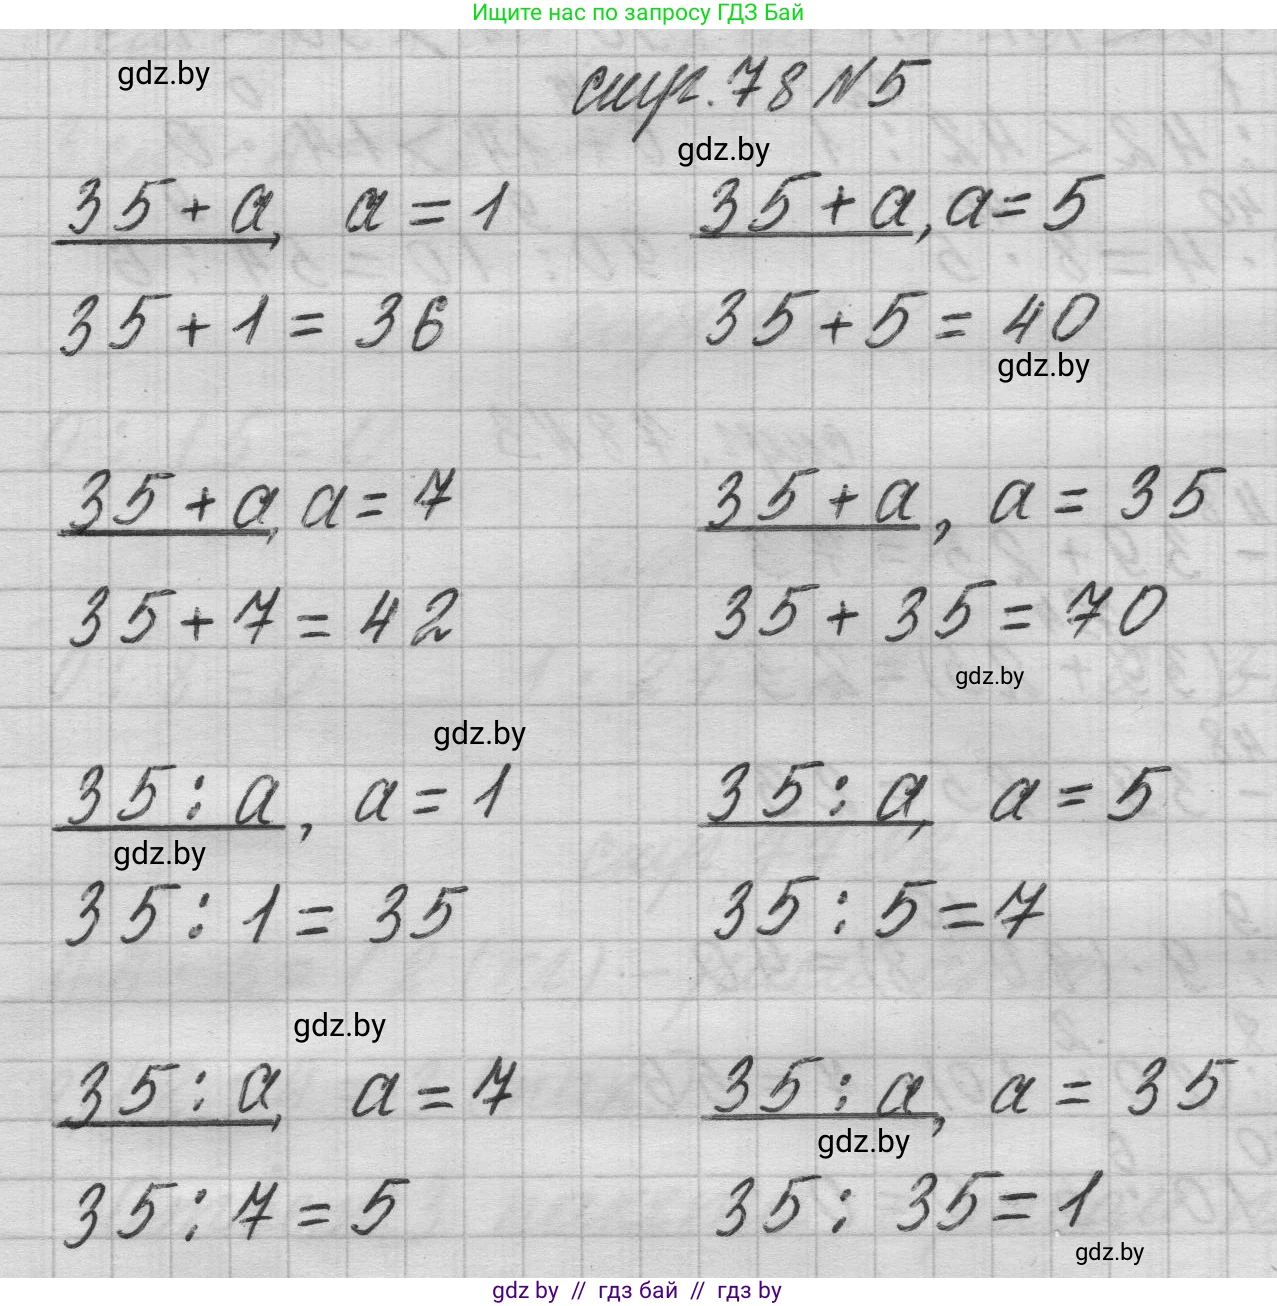 Ищите нас по запросу ГДЗ Бай
gdz.by
стр. 78 №5
gdz.by
35 + a, a = 1
35 + a, a = 5
35 + 1 = 36
35 + 5 = 40
gdz.by
35 + a, a = 7
35 + a, a = 35
35 + 7 = 42
35 + 35 = 70
gdz.by
gdz.by
35 : a, a = 1
35 : a, a = 5
gdz.by
35 : 1 = 35
35 : 5 = 7
gdz.by
35 : a, a = 7
35 : a, a = 35
gdz.by
35 : 7 = 5
35 : 35 = 1
gdz.by
gdz by // гдз бай // гдз by